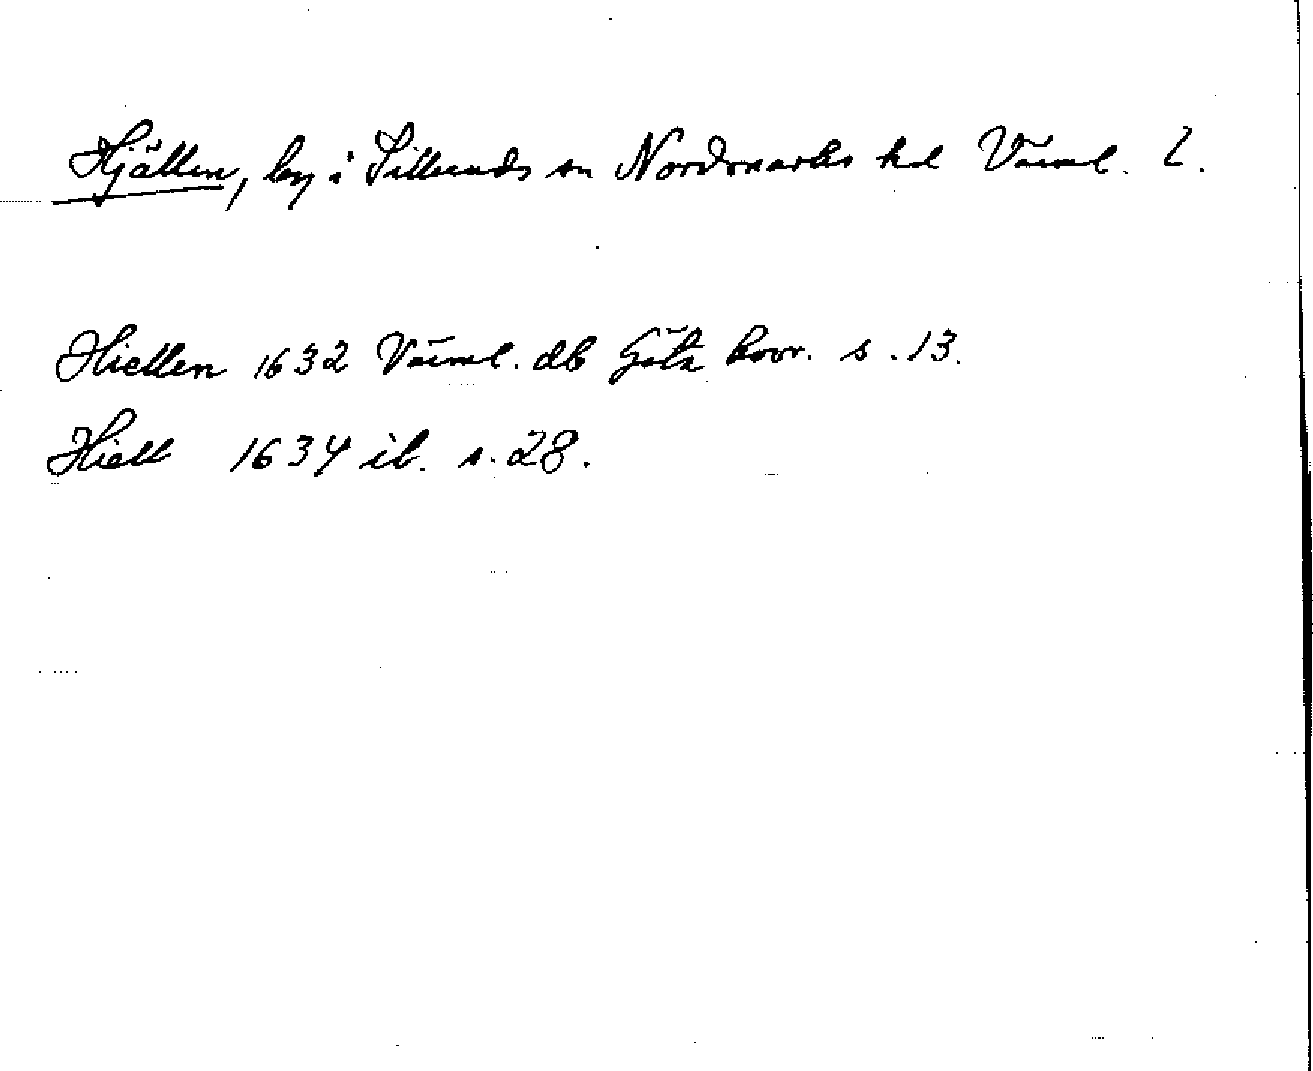 Hjällen, by i Silleruds sn Nordmarks hd Värml. l.
Hiellen 1632 Värml. db Göta hovr. s. 13.
Hiell 1634 ib. s. 28.